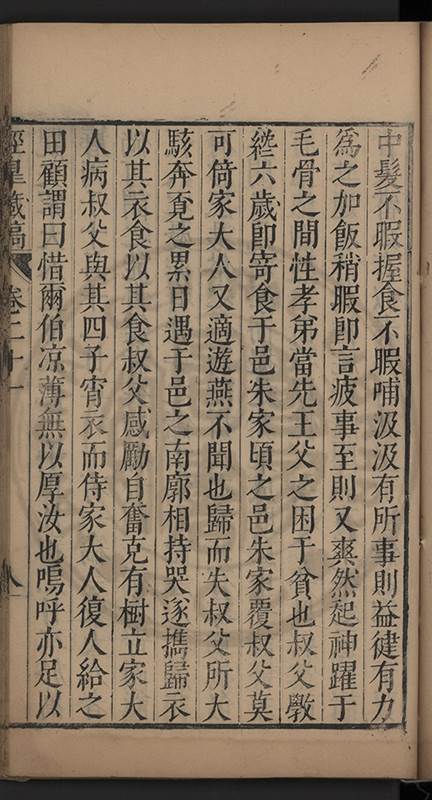 中髮不暇握食不暇哺汲汲有所事則益健有力
爲之加飯稍暇卽言疲事至則又爽然起神躍于
毛骨之間性孝弟當先王父之困于貧也叔父斆
繼六歲卽寄食于邑朱家頃之邑朱家覆叔父莫
可倚家大人又適遊燕不聞也歸而失叔父所大
駭奔覔之累日遇于邑之南廓相持哭逐攜歸衣
以其衣食以其食叔父感勵自奮克有樹立家大
人病叔父與其四子宵衣而侍家大人復人給之
田顧謂曰惜爾伯凉薄無以厚汝也嗚呼亦足以
經皐藏稿 卷二十一 八